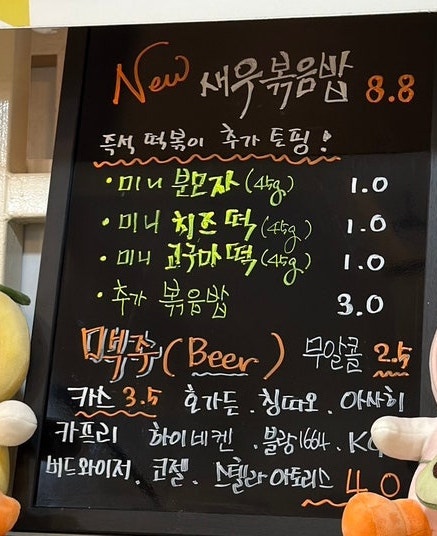 New 새우볶음밥 8.8
즉석 떡볶이 추가 토핑!
· 미니 분모자 (45g) 1.0
· 미니 치즈떡 (45g) 1.0
· 미니 고구마떡 (45g) 1.0
· 추가 볶음밥 3.0
맥주 (Beer) 무알콜 2.5
카스 3.5 호가든 . 칭따오 . 아사히
카프리 하이네켄 . 블랑1664 .
버드와이저 . 코젤 . 스텔라 아토리스 4.0